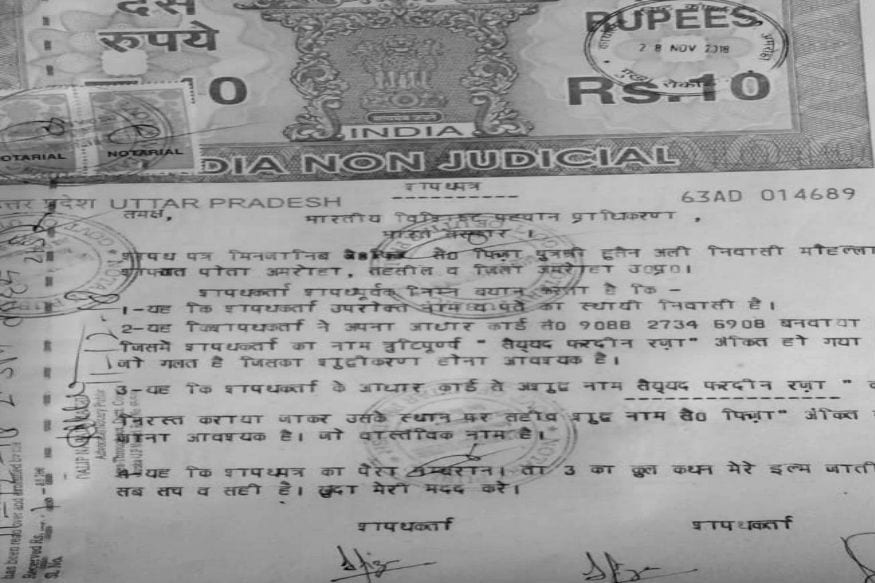 दस
रुपये
RUPEES
28 NOV 2018
10
Rs.10
INDIA
NOTARIAL
NOTARIAL
INDIA NON JUDICIAL
उत्तर प्रदेश UTTAR PRADESH
63AD 014689
शपथपत्र
समक्ष,
भारतीय विशिष्ट पहचान प्राधिकरण ,
भारत सरकार ।
शपथ पत्र मिनजानिब सै0 फिज़ा पुत्रश्री हुसैन अली निवासी मौहल्ला
शफाअत पोता अमरोहा, तहसील व जिला अमरोहा उ0प्र0।
शपथकर्ता शपथपूर्वक निम्न बयान करता है कि -
1-यह कि शपथकर्ता उपरोक्त नाम व पते का स्थायी निवासी है।
2-यह कि शपथकर्ता ने अपना आधार कार्ड सं0 9088 2734 6908 बनवाया
जिसमें शपथकर्ता का नाम त्रुटिपूर्ण " सैय्यद फरदीन रज़ा" अंकित हो गया
जो गलत है जिसका शुद्धीकरण होना आवश्यक है।
3-यह कि शपथकर्ता के आधार कार्ड से अशुद्ध नाम सैय्यद फरदीन रज़ा "
निरस्त कराया जाकर उसके स्थान पर सही व शुद्ध नाम सै0 फिज़ा" अंकित
जाना आवश्यक है। जो वास्तविक नाम है।
4-यह कि शपथपत्र का पैरा नम्बरान। ता 3 का कुल कथन मेरे इल्म जाती
सब सच व सही है। खुदा मेरी मदद करे।
शपथकर्ता
शपथकर्ता